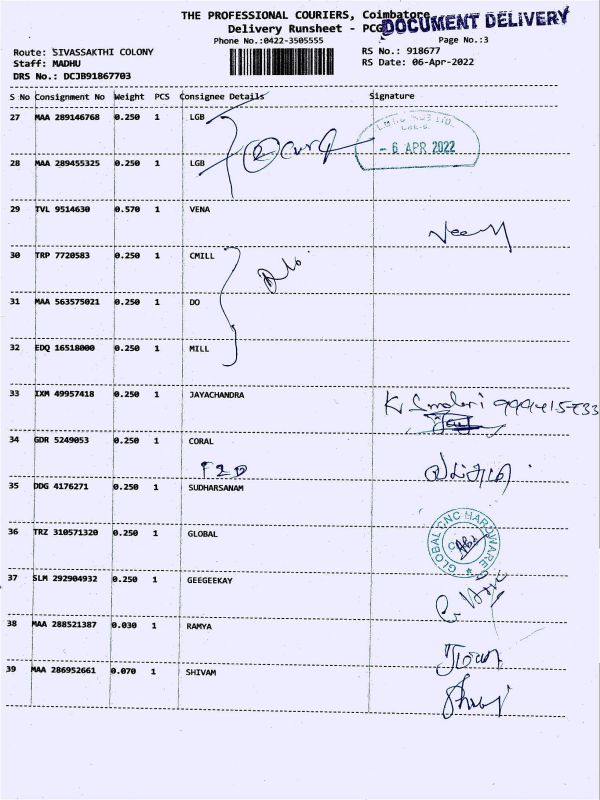 THE PROFESSIONAL COURIERS, Coimbatore
DOCUMENT DELIVERY
Delivery Runsheet - PCG
Phone No.:0422-3505555
Page No.:3
Route: SIVASSAKTHI COLONY
RS No.: 918677
Staff: MADHU
RS Date: 06-Apr-2022
DRS No.: DCJB91867703
S No Consignment No Weight PCS Consignee Details Signature
27 MAA 289146768 0.250 1 LGB
- 6 APR 2022
28 MAA 289455325 0.250 1 LGB
29 TVL 9514630 0.570 1 VENA
30 TRP 7720583 0.250 1 CMILL
31 MAA 563575021 0.250 1 DO
32 EDQ 16518000 0.250 1 MILL
33 IXM 49957418 0.250 1 JAYACHANDRA
34 GDR 5249053 0.250 1 CORAL
35 DDG 4176271 0.250 1 SUDHARSANAM
36 TRZ 310571320 0.250 1 GLOBAL
GLOBAL CNC HARDWARE
37 SLM 292904932 0.250 1 GEEGEEKAY
38 MAA 288521387 0.030 1 RAMYA
39 MAA 286952661 0.070 1 SHIVAM